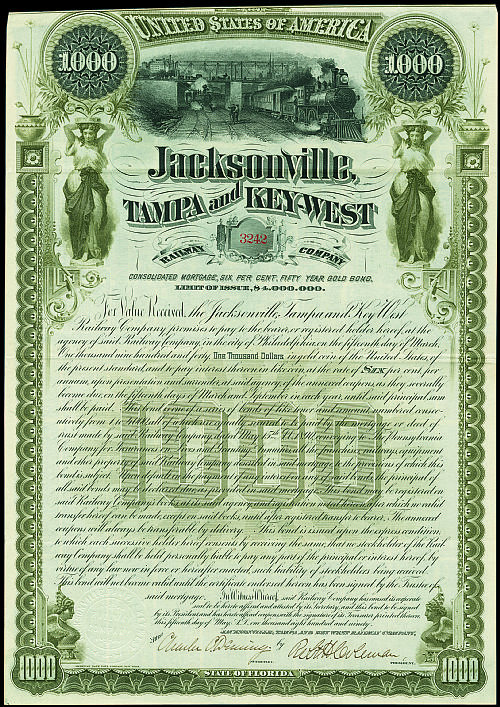 UNITED STATES OF AMERICA
1000 1000
Jacksonville,
TAMPA and KEY-WEST
3242
RAILWAY COMPANY
CONSOLIDATED MORTGAGE, SIX PER CENT, FIFTY YEAR GOLD BOND.
LIMIT OF ISSUE, $4,000,000.
For Value Received, the Jacksonville, Tampa and Key West
Railway Company promises to pay to the bearer, or registered holder hereof, at the
agency of said Railway Company, in the city of Philadelphia, on the fifteenth day of March,
One thousand nine hundred and forty One Thousand Dollars in gold coin of the United States, of
the present standard, and to pay interest thereon in like coin, at the rate of SIX per cent. per
annum, upon presentation and surrender, at said agency, of the annexed coupons, as they severally
become due, on the fifteenth days of March and September in each year, until said principal sum
shall be paid. This bond is one of a series of bonds of like tenor and amount, numbered consec-
utively from 1 to 4000
trust made by said Railway Company, dated May 15th, A.D. 1890, Pennsylvania
Company for Insurances on Lives and Granting Annuities equipment
and other property of said Railway Company described in said mortgage, to the provisions of which this
bond is subject. Upon default in the payment of any interest the principal of
all said bonds may be declared due, as provided in said mortgage. This bond may be registered on
said Railway Company's books, at its said agency, and registration noted hereon, after which no valid
transfer hereof can be made, except on said books, until after registered transfer to bearer. The annexed
coupons will always be transferable by delivery. This bond is issued upon the express condition,
to which each successive holder hereof consents by receiving the same, that no stockholder of the Rail-
way Company shall be held personally liable to pay any part of the principal or interest hereof by
virtue of any law now in force or hereafter enacted, such liability of stockholders being waived.
This bond will not become valid until the certificate endorsed hereon has been signed by the Trustee of
said mortgage. In Witness Whereof, said Railway Company has caused its corporate
seal to be hereto affixed and attested by its Secretary, and this bond to be signed
by its President and has hereto annexed coupons with the signature of its Treasurer printed thereon,
this fifteenth day of May, A.D. one thousand eight hundred and ninety.
JACKSONVILLE, TAMPA AND KEY WEST RAILWAY COMPANY,
by
SECRETARY. PRESIDENT.
1000 STATE OF FLORIDA 1000